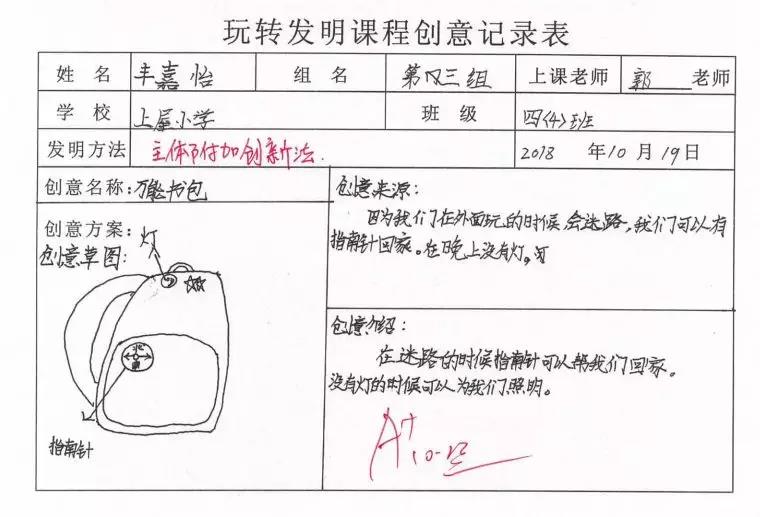 玩转发明课程创意记录表
姓 名 丰嘉怡 组 名 第四三组 上课老师 郭 老师
学 校 上屋小学 班 级 四(4)班
发明方法 主体附加创新法. 2018 年10 月19日
创意名称:万能书包
创意方案:
创意草图:
灯
北
南
指南针
创意来源:
因为我们在外面玩的时候会迷路,我们可以有
指南针回家。在晚上没有灯,可
创意介绍:
在迷路的时候指南针可以帮我们回家。
没有灯的时候可以为我们照明。
A+